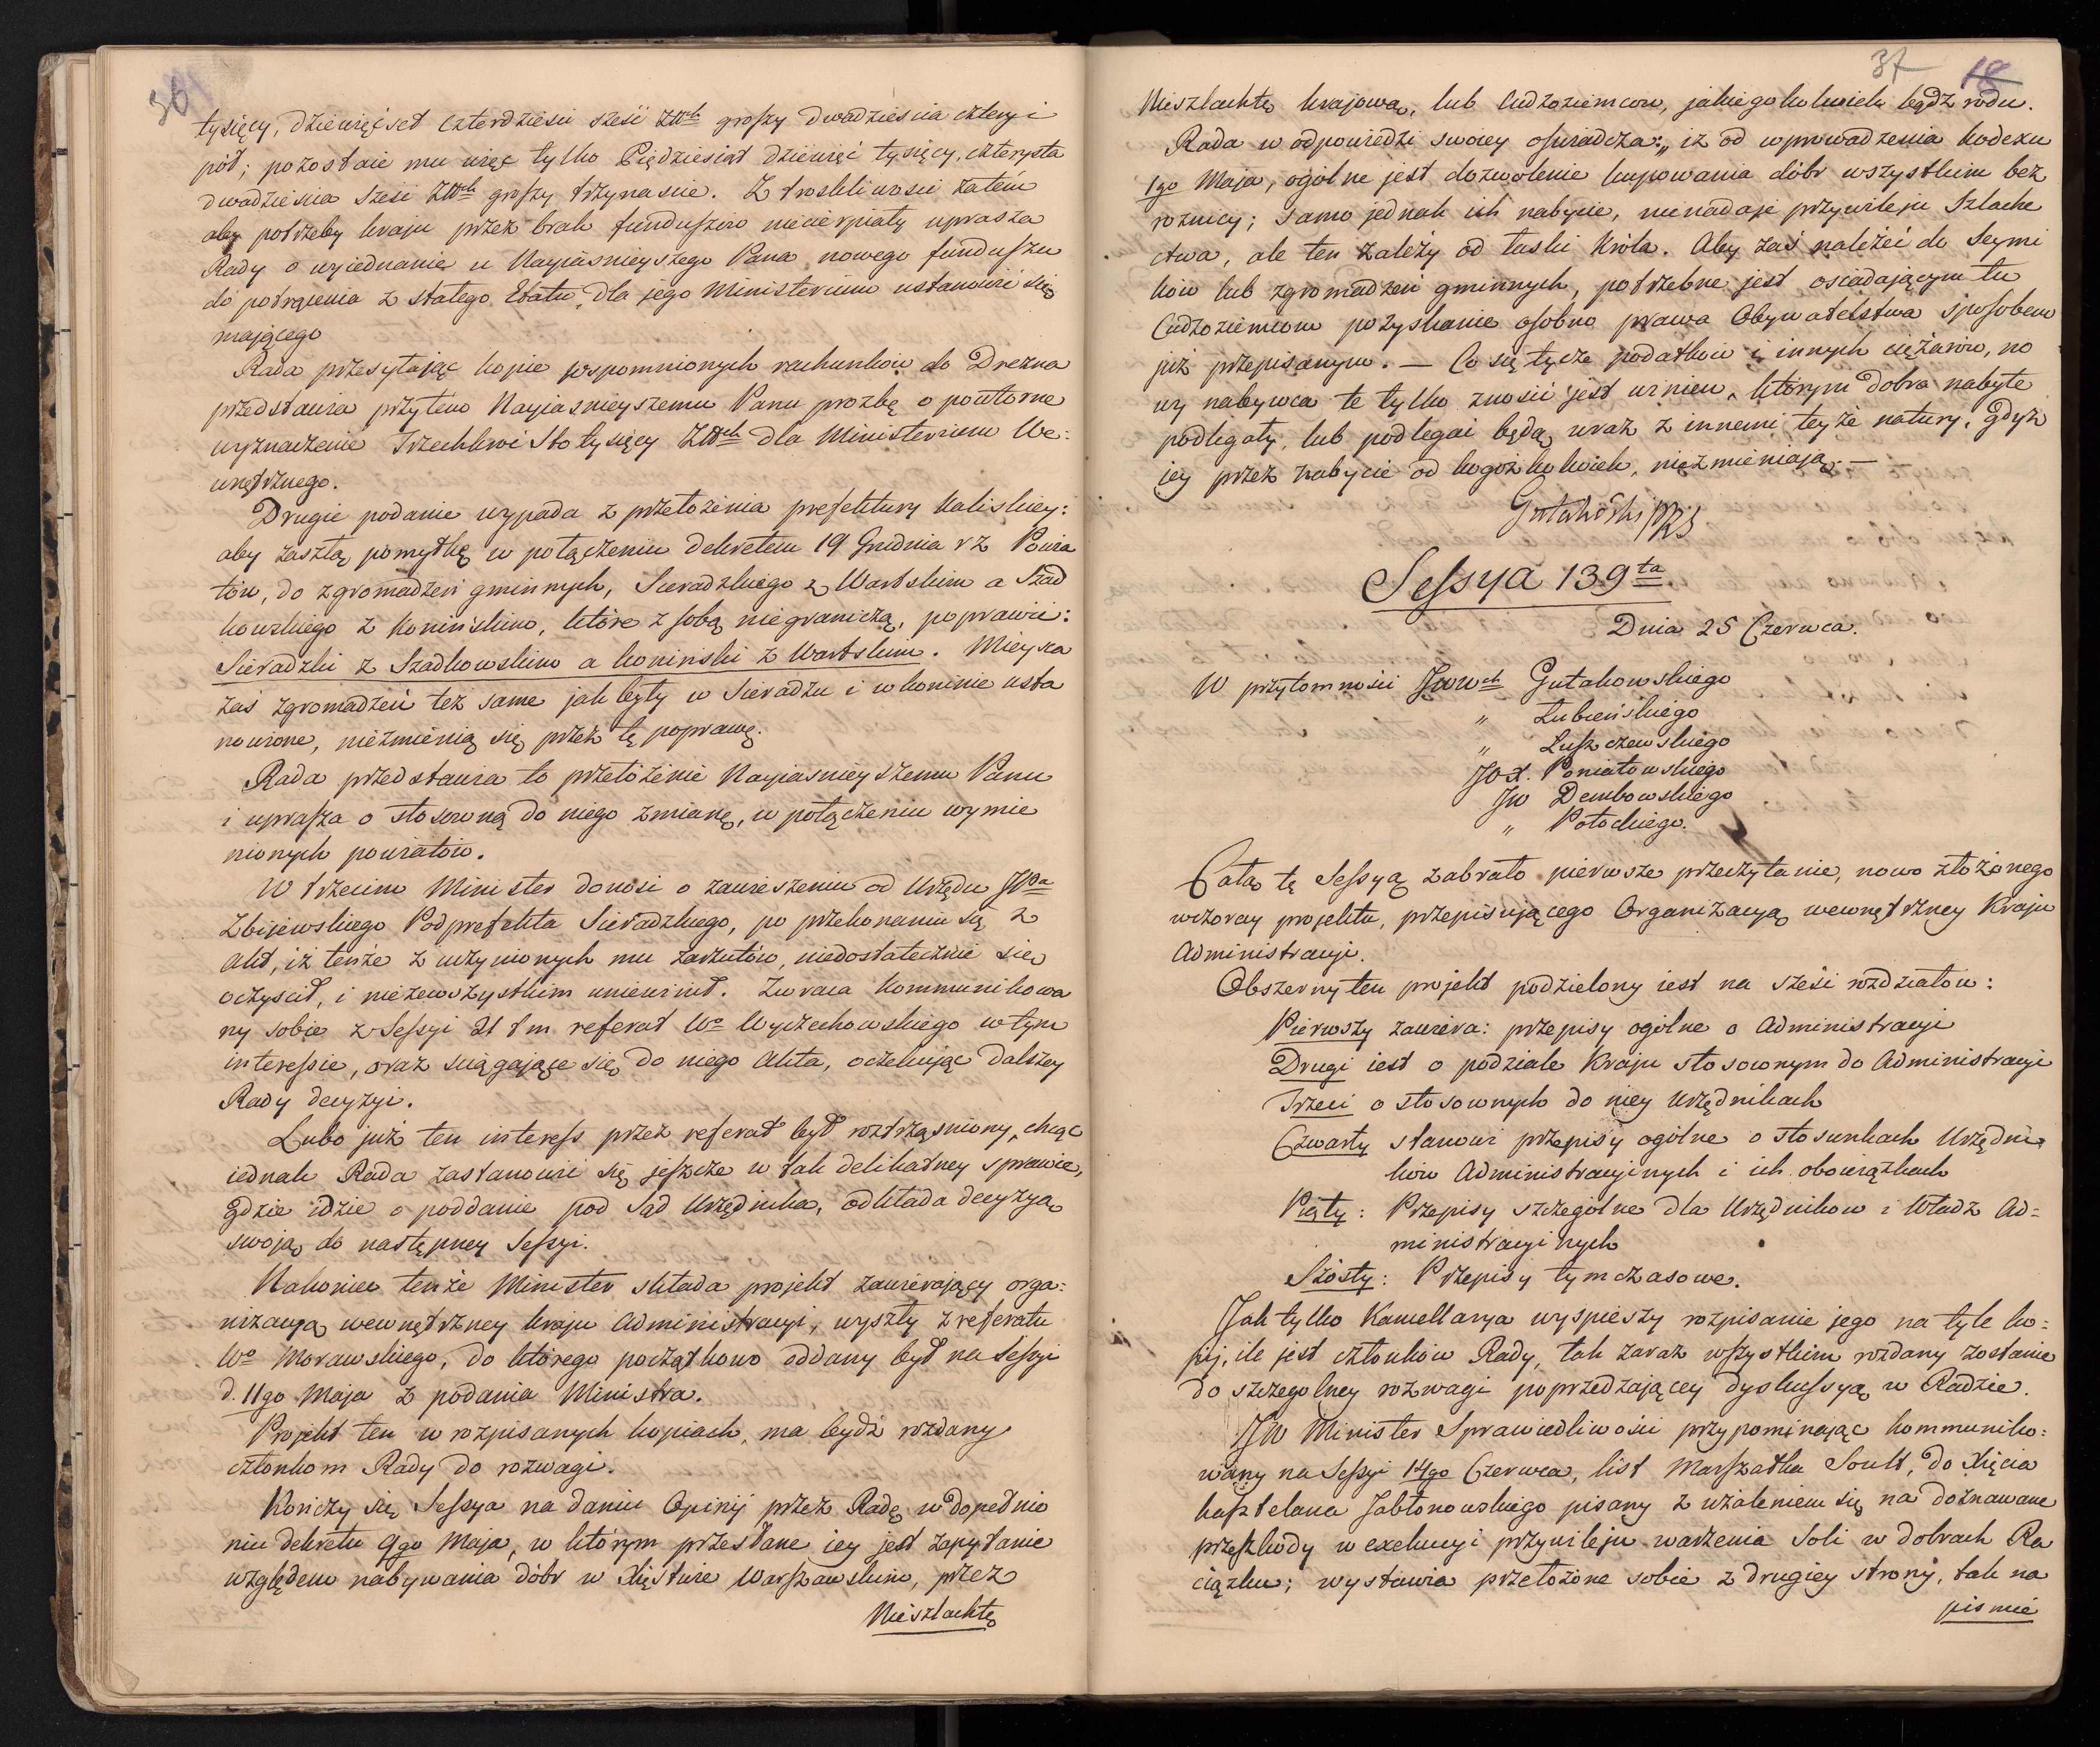 36
tysięcy, dziewięćset czterdzieści sześć Złłch groszy dwadzieścia cztery i
pół; pozostaie mu więc tylko Pięćdziesiąt dziewięć tysięcy, czterysta
dwadzieścia sześć Złłch groszy trzynaście. Z troskliwości zatem
aby potrzeby kraju przez brak funduszow niecierpiały uprasza
Rady o wyiednanie u Nayiasnieyszego Pana nowego funduszu
do potrącenia z stałego Etatu, dla jego Ministerium ustanowić się
mającego
Rada przesyłając kopie wspomnionych rachunków do Drezna
przedstawia przytem Nayiasnieyszemu Panu prozbę o powtorne
wyznaczenie Trzechkroć Stotysięcy Złłch dla Ministerium We:
wnętrznego.
Drugie podanie wypada z przełożenia prefektury Kaliskiey:
aby zaszłą pomyłkę w połączeniu dekretem 19 Grudnia r z Powia
tów, do zgromadzeń gminnych, Sieradzkiego z Wartskim a Szad
kowskiego z Konińskim, które z sobą niegraniczą, poprawić:
Sieradzki z Szadkowskim a koniński z Wartskim. Mieysca
zaś zgromadzeń też same jak były w Sieradzu i w koninie usta
nowione, niezmienią się przez tę poprawę.
Rada przedstawia to przełożenie Nayiasnieyszemu Panu
i uprasza o stosowną do niego zmianę, w połączeniu wymie
nionych powiatów.
W trzecim Minister donosi o zawieszeniu od Urzędu JWa
Zbijewskiego Podprefekta Sieradzkiego, po przekonaniu się z
Akt, iż tenże z uczynionych mu zarzutów, niedostatecznie się
oczyscił, i niezewszystkim uniewinił. Zwraca kommunikowa
ny sobie z Sessyi 21 t m referat Wo Wyczechowskiego w tym
interessie, oraz sciągające się do niego Akta, oczekując dalszey
Rady decyzyi.
Lubo już ten interess przez referat był roztrząsniony, chcąc
iednak Rada zastanowić się jeszcze w tak delikatney sprawie,
gdzie idzie o poddanie pod Sąd Urzędnika, odkłada decyzyą
swoją do następney Sessyi.
Nakoniec tenże Minister składa projekt zawierający orga:
nizacyą wewnętrzney kraju Administracyi, wyszły z referatu
Wo Morawskiego, do którego początkowo oddany był na Sessyi
d. 11go Maja z podania Ministra.
Projekt ten w rozpisanych kopiach, ma bydź rozdany
członkom Rady do rozwagi.
Kończy się Sessya na daniu Opinij przez Radę w dopełnie
niu dekretu 9go Maja, w którym przesłane iey jest zapytanie
względem nabywania dóbr w Xięstwie Warszawskim, przez
Nieszlachtę
37 18
Nieszlachtę krajową, lub Cudzoziemcow, jakiegokolwiek bądź rodu.
Rada w odpowiedzi swoiey oświadcza: „iż od wprowadzenia kodexu
1go Maja, ogólne jest dozwolenie kupowania dóbr wszystkim bez
roznicy; samo jednak ich nabycie, nienadaje przywileju Szlache
ctwa, ale ten zależy od łaski Króla. Aby zaś należeć do Seymi
ków lub zgromadzeń gminnych, potrzebne jest osiadającym tu
Cudzoziemcom pozyskanie osobno prawa Obywatelstwa sposobem
już przepisanym. — Co się tycze podatków i innych ciężarów, no
wy nabywca te tylko znosić jest winien, którym dobra nabyte
podlegały, lub podlegać będą wraz z innemi teyże natury, gdyż
jey przez nabycie od kogożkolwiek, niezmieniają. —
Gutakowski PRS
Sessya 139ta
Dnia 25 Czerwca.
W przytomności JWWch Gutakowskiego
„ Łubieńskiego
„ Łuszczewskiego
JOX. Poniatowskiego
JW Dembowskiego
„ Potockiego.
Całą tę Sessyą zabrało pierwsze przeczytanie, nowo złożonego
wczoray projektu, przepisującego Organizacyą wewnętrzney Kraju
Administracyi.
Obszerny ten projekt podzielony iest na sześć rozdziałow:
Pierwszy zawiera: przepisy ogólne o Administracyi
Drugi iest o podziale Kraju stosowonym do Administracyi
Trzeci o stosownych do niey Urzędnikach
Czwarty stanowi przepisy ogólne o stosunkach Urzędni
ków Administracyinych i ich obowiązkach
Piąty: Przepisy szczególne dla Urzędnikow i Władz Ad=
ministracyinych
Szósty: Przepisy tymczasowe.
Jak tylko Kancellarya wyspieszy rozpisanie jego na tyle ko:
pij, ile jest członków Rady, tak zaraz wszystkim rozdany zostanie
do szczegolney rozwagi poprzedzającey dyskussyą w Radzie.
JW Minister Sprawiedliwości przypominając kommuniko:
wany na Sessyi 14go Czerwca, list Marszałka Soult, do Xięcia
kasztelana Jabłonowskiego pisany z użaleniem się na doznawane
przeszkody w exekucyi przywileju warzenia Soli w dobrach Ra
ciązku; wystawia przełożone sobie z drugiey strony, tak na
pismie